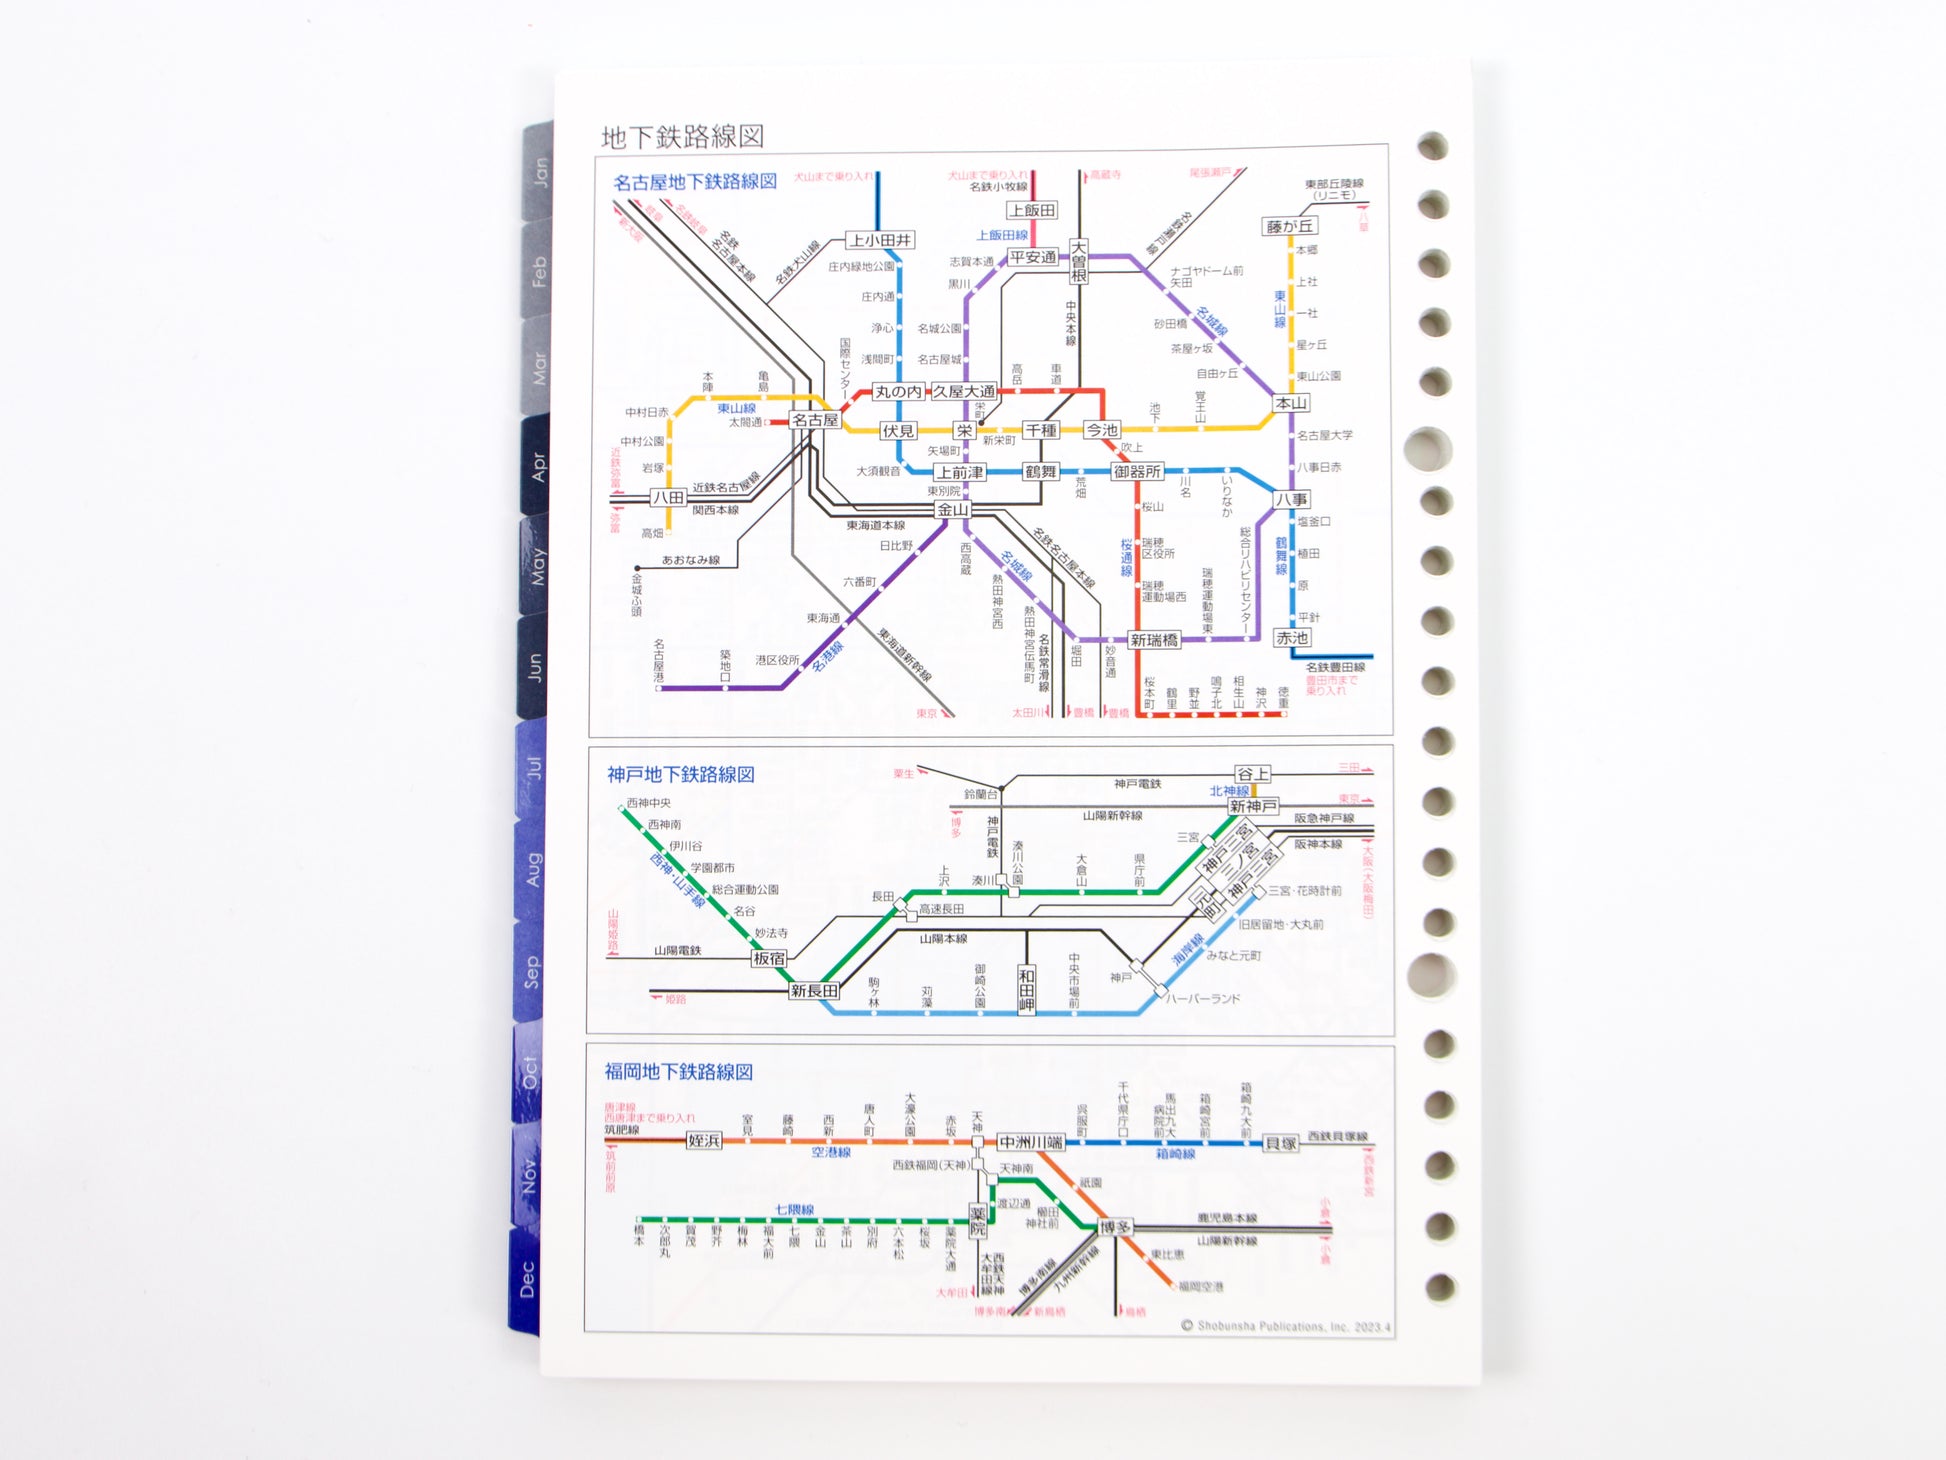 地下鉄路線図
Jan
Feb
Mar
Apr
May
Jun
Jul
Aug
Sep
Oct
Nov
Dec
名古屋地下鉄路線図
犬山まで乗り入れ
犬山まで乗り入れ
名鉄小牧線
高蔵寺
尾張瀬戸
東部丘陵線
(リニモ)
八草
新大阪
岐阜
名鉄岐阜
名鉄
名古屋本線
名鉄犬山線
上小田井
上飯田
上飯田線
平安通
大曽根
名鉄瀬戸線
藤が丘
庄内緑地公園
志賀本通
黒川
ナゴヤドーム前
矢田
本郷
上社
庄内通
浄心
名城公園
中央本線
砂田橋
名城線
東山線
一社
国際センター
浅間町
名古屋城
茶屋ヶ坂
星ヶ丘
自由ヶ丘
東山公園
本陣
亀島
高岳
車道
丸の内
久屋大通
本山
中村日赤
東山線
太閤通
名古屋
栄町
池下
覚王山
中村公園
伏見
栄
新栄町
千種
今池
名古屋大学
矢場町
吹上
近鉄弥富
岩塚
大須観音
上前津
鶴舞
荒畑
御器所
川名
いりなか
八事日赤
八田
近鉄名古屋線
関西本線
東別院
八事
弥富
高畑
金山
桜山
塩釜口
東海道本線
日比野
西高蔵
名鉄名古屋本線
瑞穂
区役所
総合リハビリセンター
鶴舞線
植田
あおなみ線
金城ふ頭
六番町
名城線
熱田神宮西
桜通線
瑞穂
運動場西
瑞穂運動場東
原
東海通
熱田神宮伝馬町
平針
名古屋港
築地口
港区役所
名港線
東海道新幹線
名鉄常滑線
堀田
妙音通
新瑞橋
赤池
名鉄豊田線
豊田市まで
乗り入れ
桜本町
鶴里
野並
鳴子北
相生山
神沢
徳重
東京
太田川
豊橋
豊橋
神戸地下鉄路線図
粟生
鈴蘭台
神戸電鉄
谷上
三田
北神線
新神戸
東京
西神中央
山陽新幹線
博多
神戸電鉄
西神南
阪急神戸線
伊川谷
三宮
神戸三宮
三ノ宮
神戸三宮
阪神本線
西神・山手線
学園都市
湊川公園
大倉山
県庁前
大阪(大阪梅田)
総合運動公園
上沢
湊川
三宮・花時計前
名谷
長田
高速長田
元町
旧居留地・大丸前
山陽姫路
妙法寺
山陽電鉄
板宿
山陽本線
海岸線
みなと元町
姫路
新長田
駒ヶ林
苅藻
御崎公園
和田岬
中央市場前
神戸
ハーバーランド
福岡地下鉄路線図
唐津線
西唐津まで乗り入れ
筑肥線
筑前前原
姪浜
室見
藤崎
西新
唐人町
大濠公園
赤坂
天神
空港線
中洲川端
呉服町
千代県庁口
馬出九大
病院前
箱崎宮前
箱崎九大前
箱崎線
貝塚
西鉄貝塚線
西鉄新宮
西鉄福岡(天神)
天神南
祇園
七隈線
渡辺通
櫛田
神社前
薬院
博多
鹿児島本線
山陽新幹線
小倉
小倉
橋本
次郎丸
賀茂
野芥
梅林
福大前
七隈
金山
茶山
別府
六本松
桜坂
薬院大通
西鉄天神
大牟田線
大牟田
博多南線
九州新幹線
東比恵
福岡空港
博多南
新鳥栖
鳥栖
© Shobunsha Publications, Inc. 2023.4